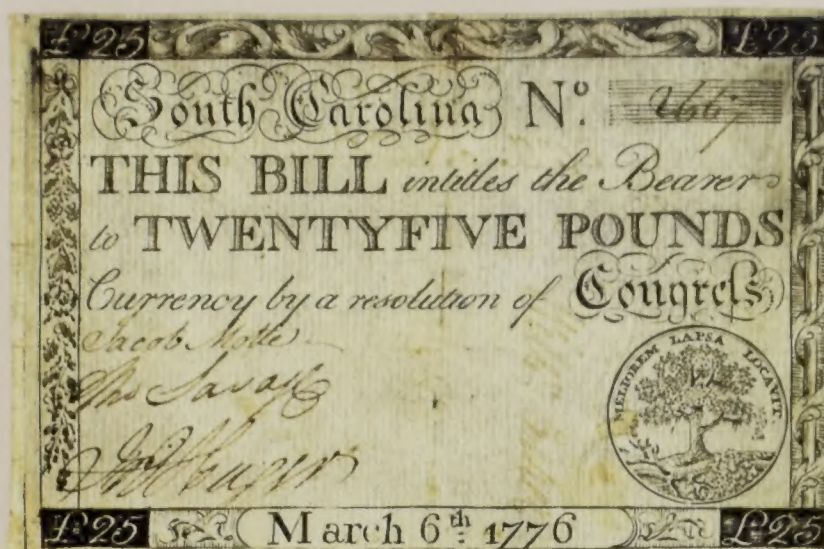 £25 £25
South Carolina Nº. 2667
THIS BILL intitles the Bearer
to TWENTYFIVE POUNDS
Currency by a resolution of Congreſs
Jacob Motte
Tho Savage
MELIOREM LAPSA LOCAVIT
£25 March 6th: 1776 £25